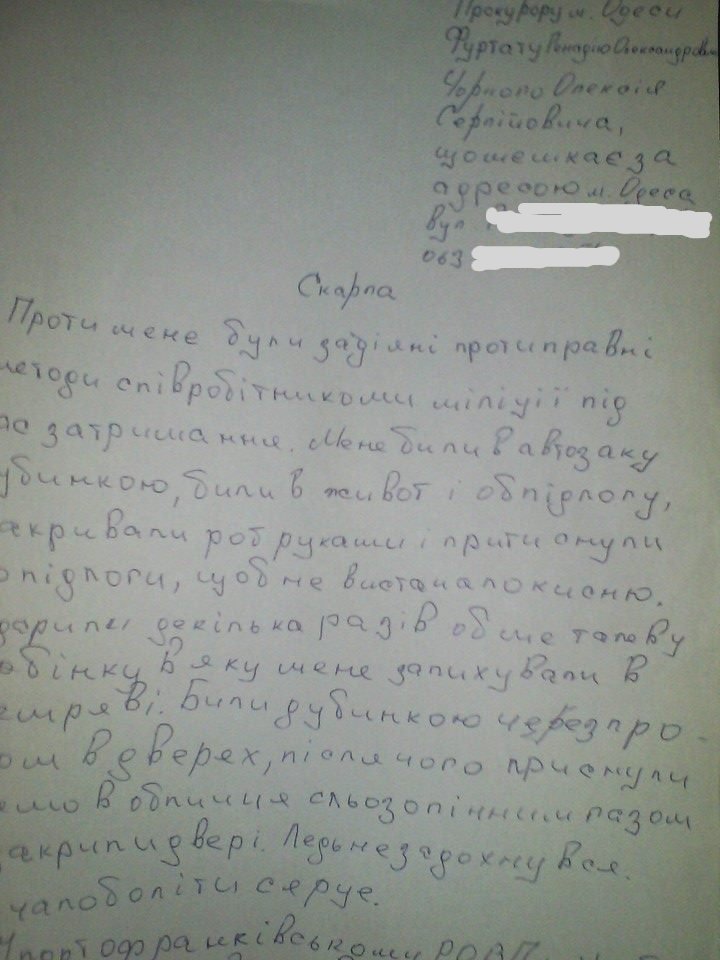 Прокурору м. Одеси
Фуртату Генадію Олександровичу
Чорного Олексія
Сергійовича,
що мешкає за
адресою м. Одеса
вул
063
Скарга
Проти мене були задіяні протиправні
методи співробітникоми міліції під
ас затримання. Мене били в автозаку
убинкою, били в живот і об підлогу,
акривали рот руками і притиснули
о підлоги, щоб не вистачало кисню.
дарили декілька разів об металеву
обінку в яку мене запихували в
емряві. Били дубинкою через про-
ом в дверях, після чого приснули
ямо в обличчя сльозогінним газом
акрили двері. Ледь не задохнувся.
чало боліти серце.
портофранківському РОВД